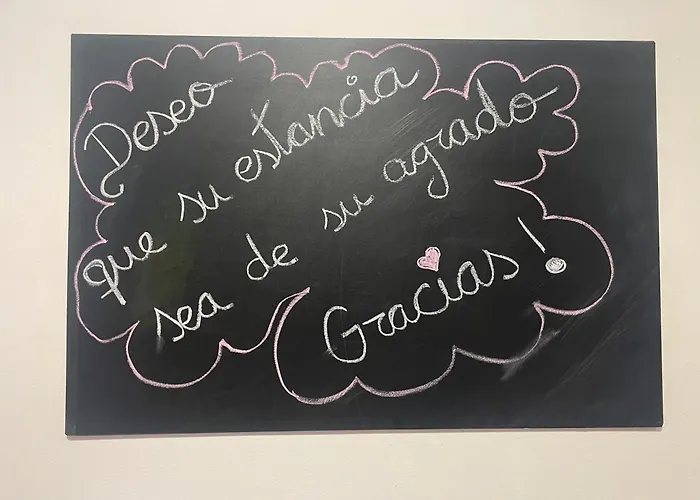 Deseo
que su estancia
sea de su agrado
Gracias!